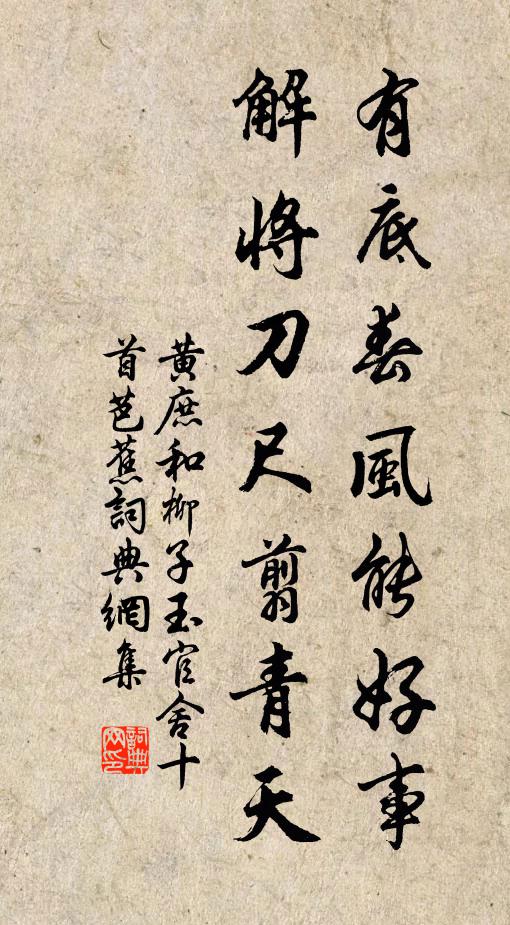 有底春風能好事
解將刀尺翦青天
黃庶和柳子玉官舍十
首芭蕉詞典網集
詞典网印